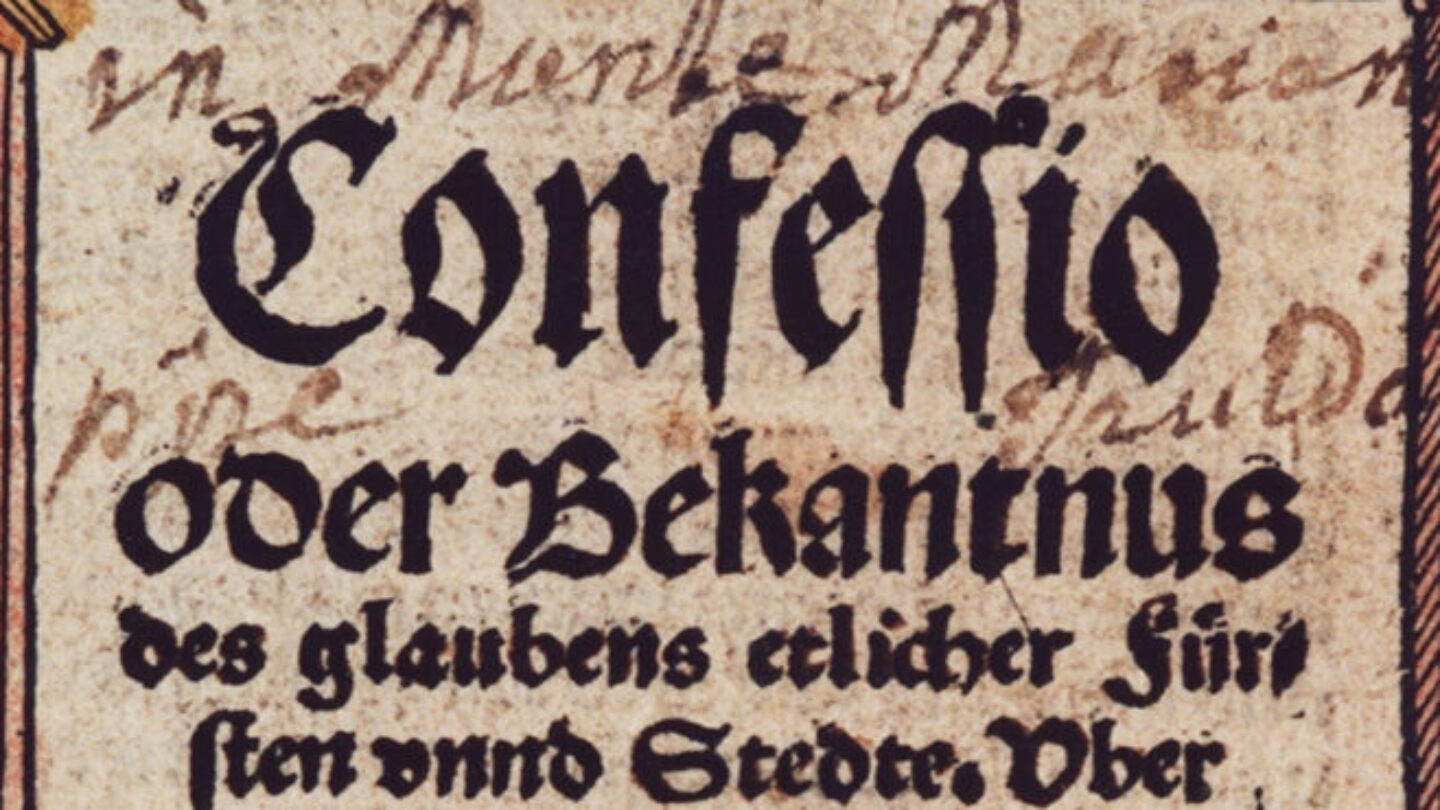 in Marien
Confessio
oder Bekantnus
des glaubens etlicher Für⸗
sten vnnd Stedte. Vber